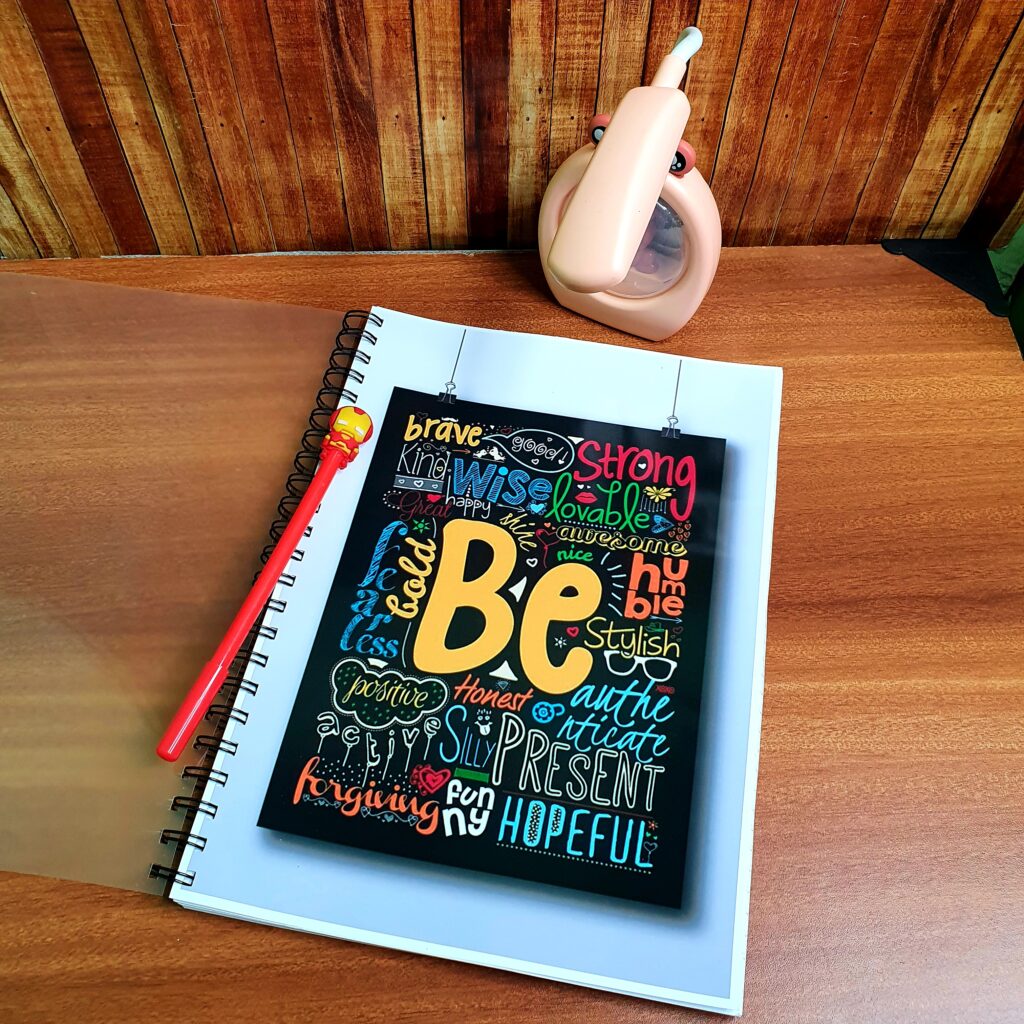 brave
good
Strong
Kind
Wise
lovable
Great
happy
shine
awesome
nice
Fe
ar
less
bold
Be
hu
m
ble
Stylish
positive
Honest
authe
nticate
active
Silly
PRESENT
forgiving
fun
ny
HOPEFUL